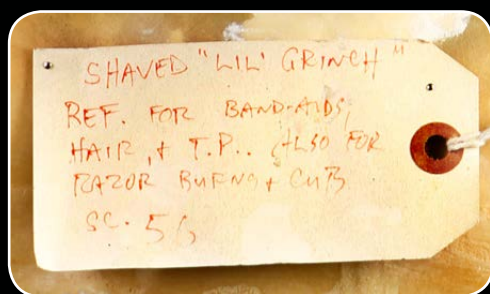 SHAVED "LIL' GRINCH"
REF. FOR BAND-AIDS,
HAIR, + T.P.. ALSO FOR
RAZOR BURNS + CUTS
SC. 56